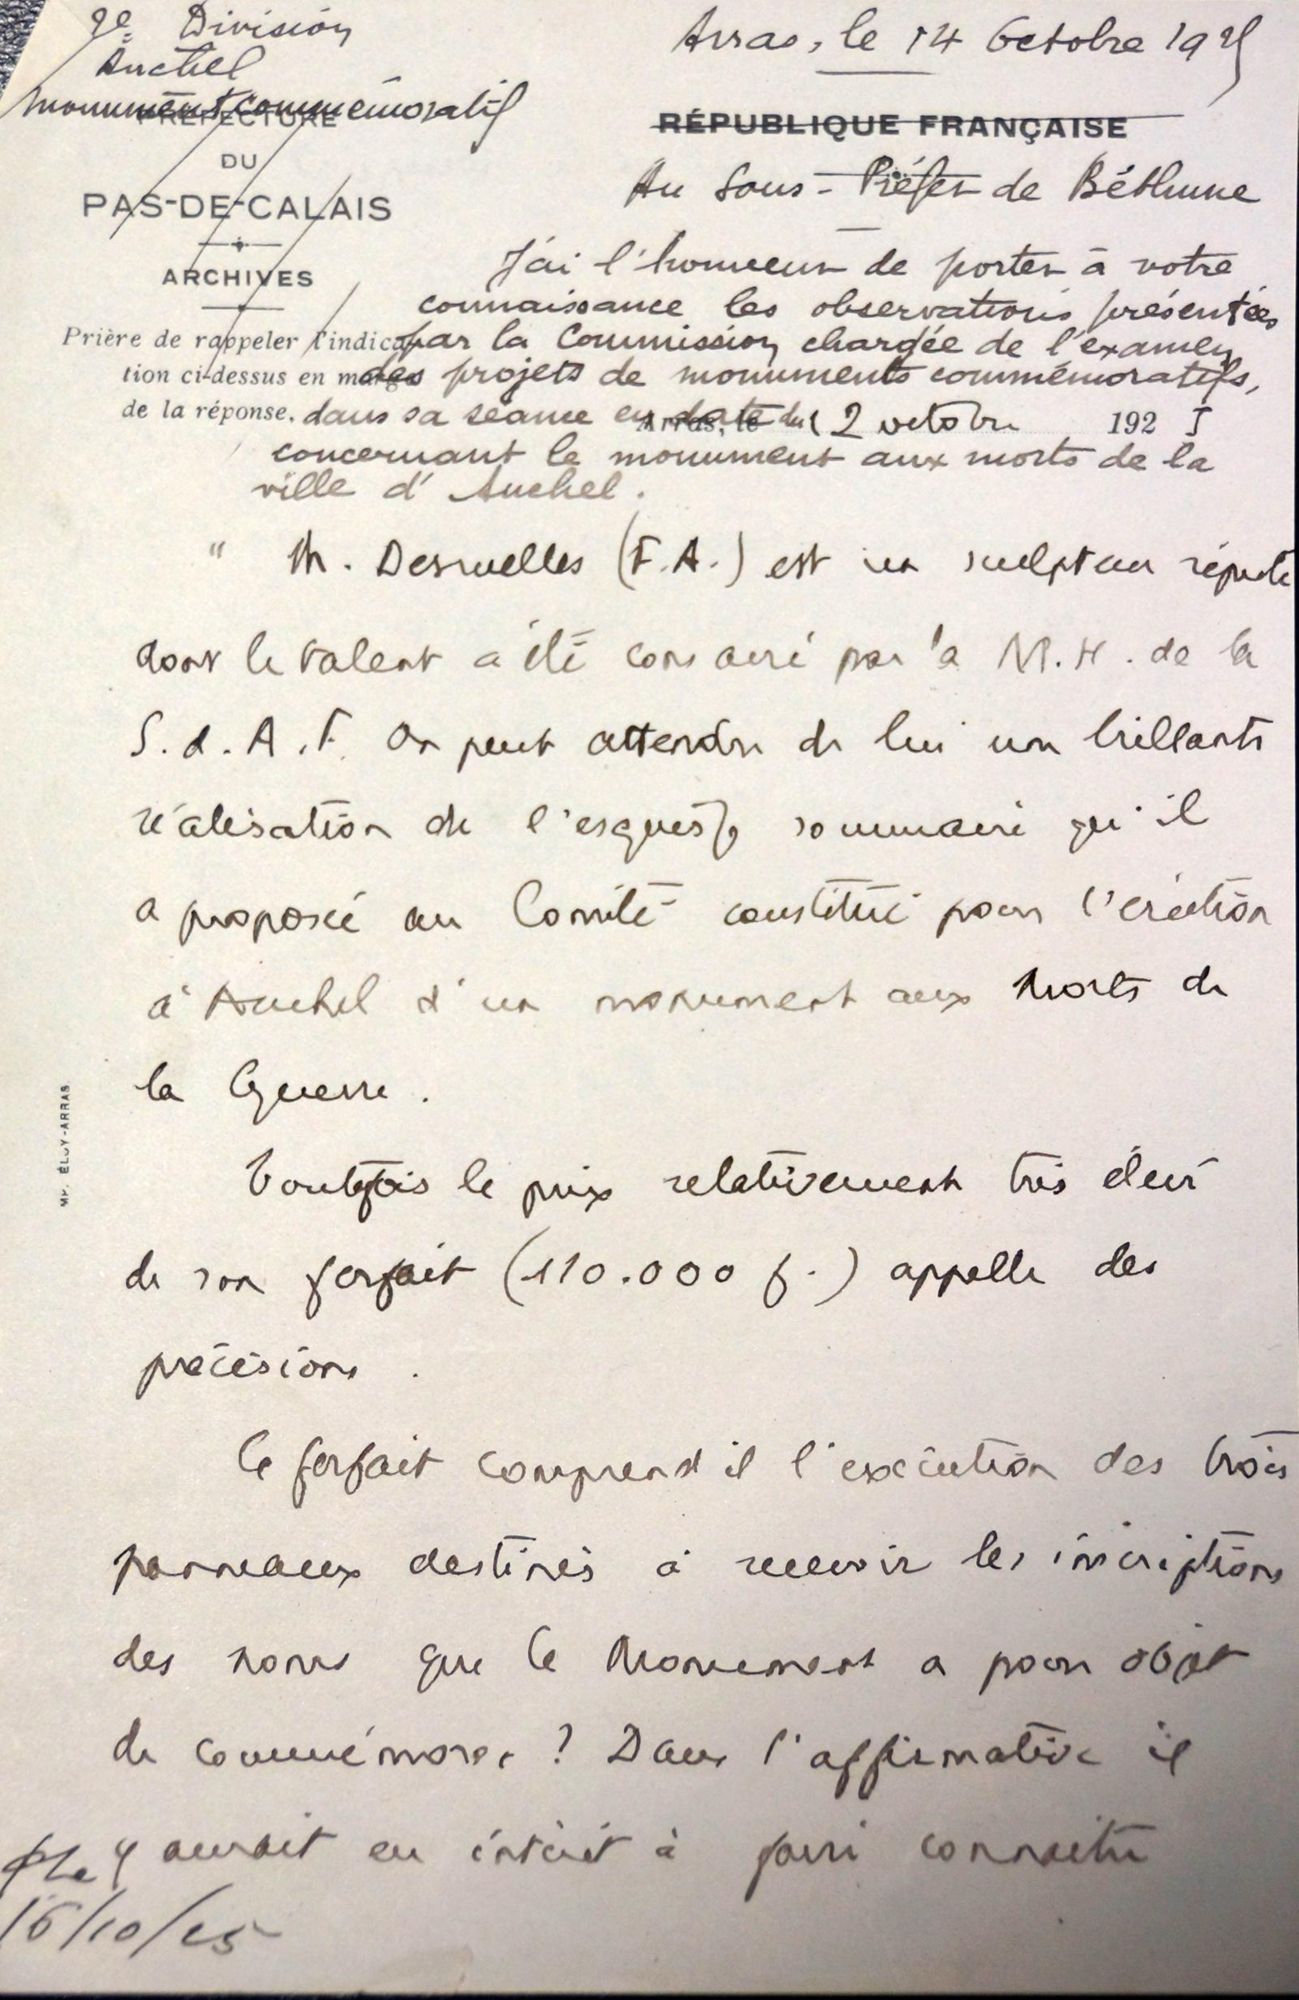 2e Division
Auchel
monument commémoratif
Arras, le 14 Octobre 1925
PRÉFECTURE
DU
PAS-DE-CALAIS
ARCHIVES
RÉPUBLIQUE FRANÇAISE
Au Sous-Préfet de Béthune
J'ai l'honneur de porter à votre
connaissance les observations présentées
Prière de rappeler l'indica-
par la Commission chargée de l'examen
tion ci-dessus en marge
des projets de monuments commémoratifs,
de la réponse.
dans sa séance en date du 12 octobre
Arras, le 192 5
concernant le monument aux morts de la
ville d'Auchel.
" M. Desruelles (F.A.) est un sculpteur réputé
dont le talent a été consacré par la M.H. de la
S.d.A.F. On peut attendre de lui une brillante
réalisation de l'esquisse sommaire qu'il
a proposée au Comité constitué pour l'érection
à Auchel d'un monument aux Morts de
la Guerre.
Toutefois le prix relativement très élevé
de son forfait (110.000 f.) appelle des
précisions.
Ce forfait comprend il l'exécution des trois
panneaux destinés à recevoir les inscriptions
des noms que le Monument a pour objet
de commémorer ? Dans l'affirmative il
y aurait eu intérêt à faire connaître
16/10/25
IMP. ÉLOY-ARRAS